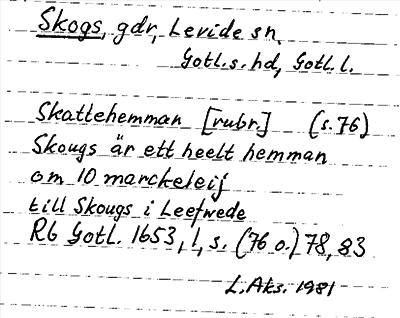 Skogs, gdr, Levide sn,
Gotl. s. hd, Gotl. l.
Skattehemman [rubr.] (s. 76)
Skougs är ett heelt hemman
om 10 marckeleij
till Skougs i Leefwede
Rb Gotl. 1653, 1, s. (76 o.) 78, 83
L. Aks. 1981